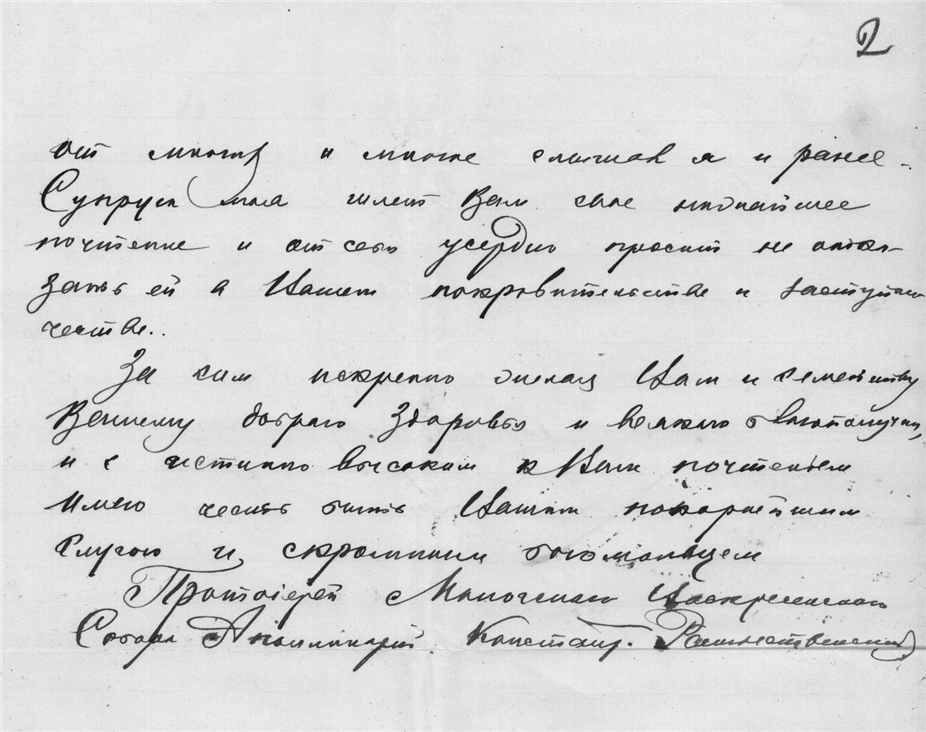 2
от многих и многое слышал я и ранее.
Супруга моя шлет Вам свое нижайшее
почтение и от себя усердно просит не отка-
зать ей в Вашем покровительстве и заступни-
честве..
За сим искренно желая Вам и семейству
Вашему доброго здоровья и всякого благополучия,
и с истинно высоким к Вам почтеньем
имею честь быть Вашим покорнейшим
слугою и скромным богомольцем
Протоіерей Мологского Воскресенского
Собора Аполлинарий Констант. Рождественский